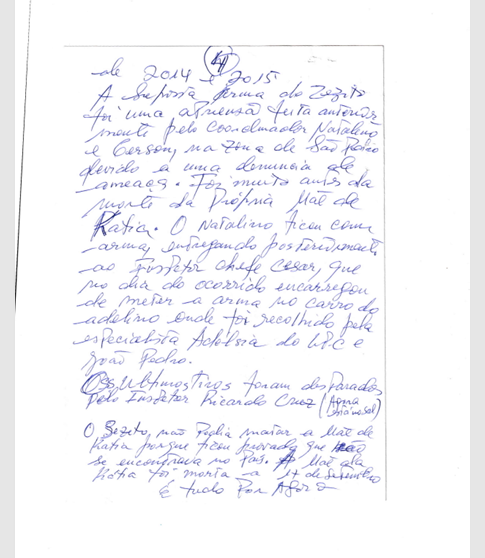 (4)
de 2014 e 2015
A suposta arma do Zezito
foi uma apriensão feita anterior
mente pelo coordenador Natalino
e Gerson, na zona de São Pedro
devido a uma denuncia de
ameaça. Foi muito antes da
morte da Própria Mãe de
Katia. O Natalino ficou com
arma, entregando posteriormente
ao Inspetor chefe Cesar, que
no dia do ocorrido encarregou
de meter a arma no carro do
adelino onde foi recolhido pela
especialista do LPC e
João Pedro.
Os Ultimos tiros foram desparados
pelo Inspetor Ricardo Cruz
O Zezito, não Podia matar a Mãe de
Katia porque ficou provado que não
se encontrava no País. A Mãe da
Katia foi morta a 17 de Setembro
É tudo Por Agora